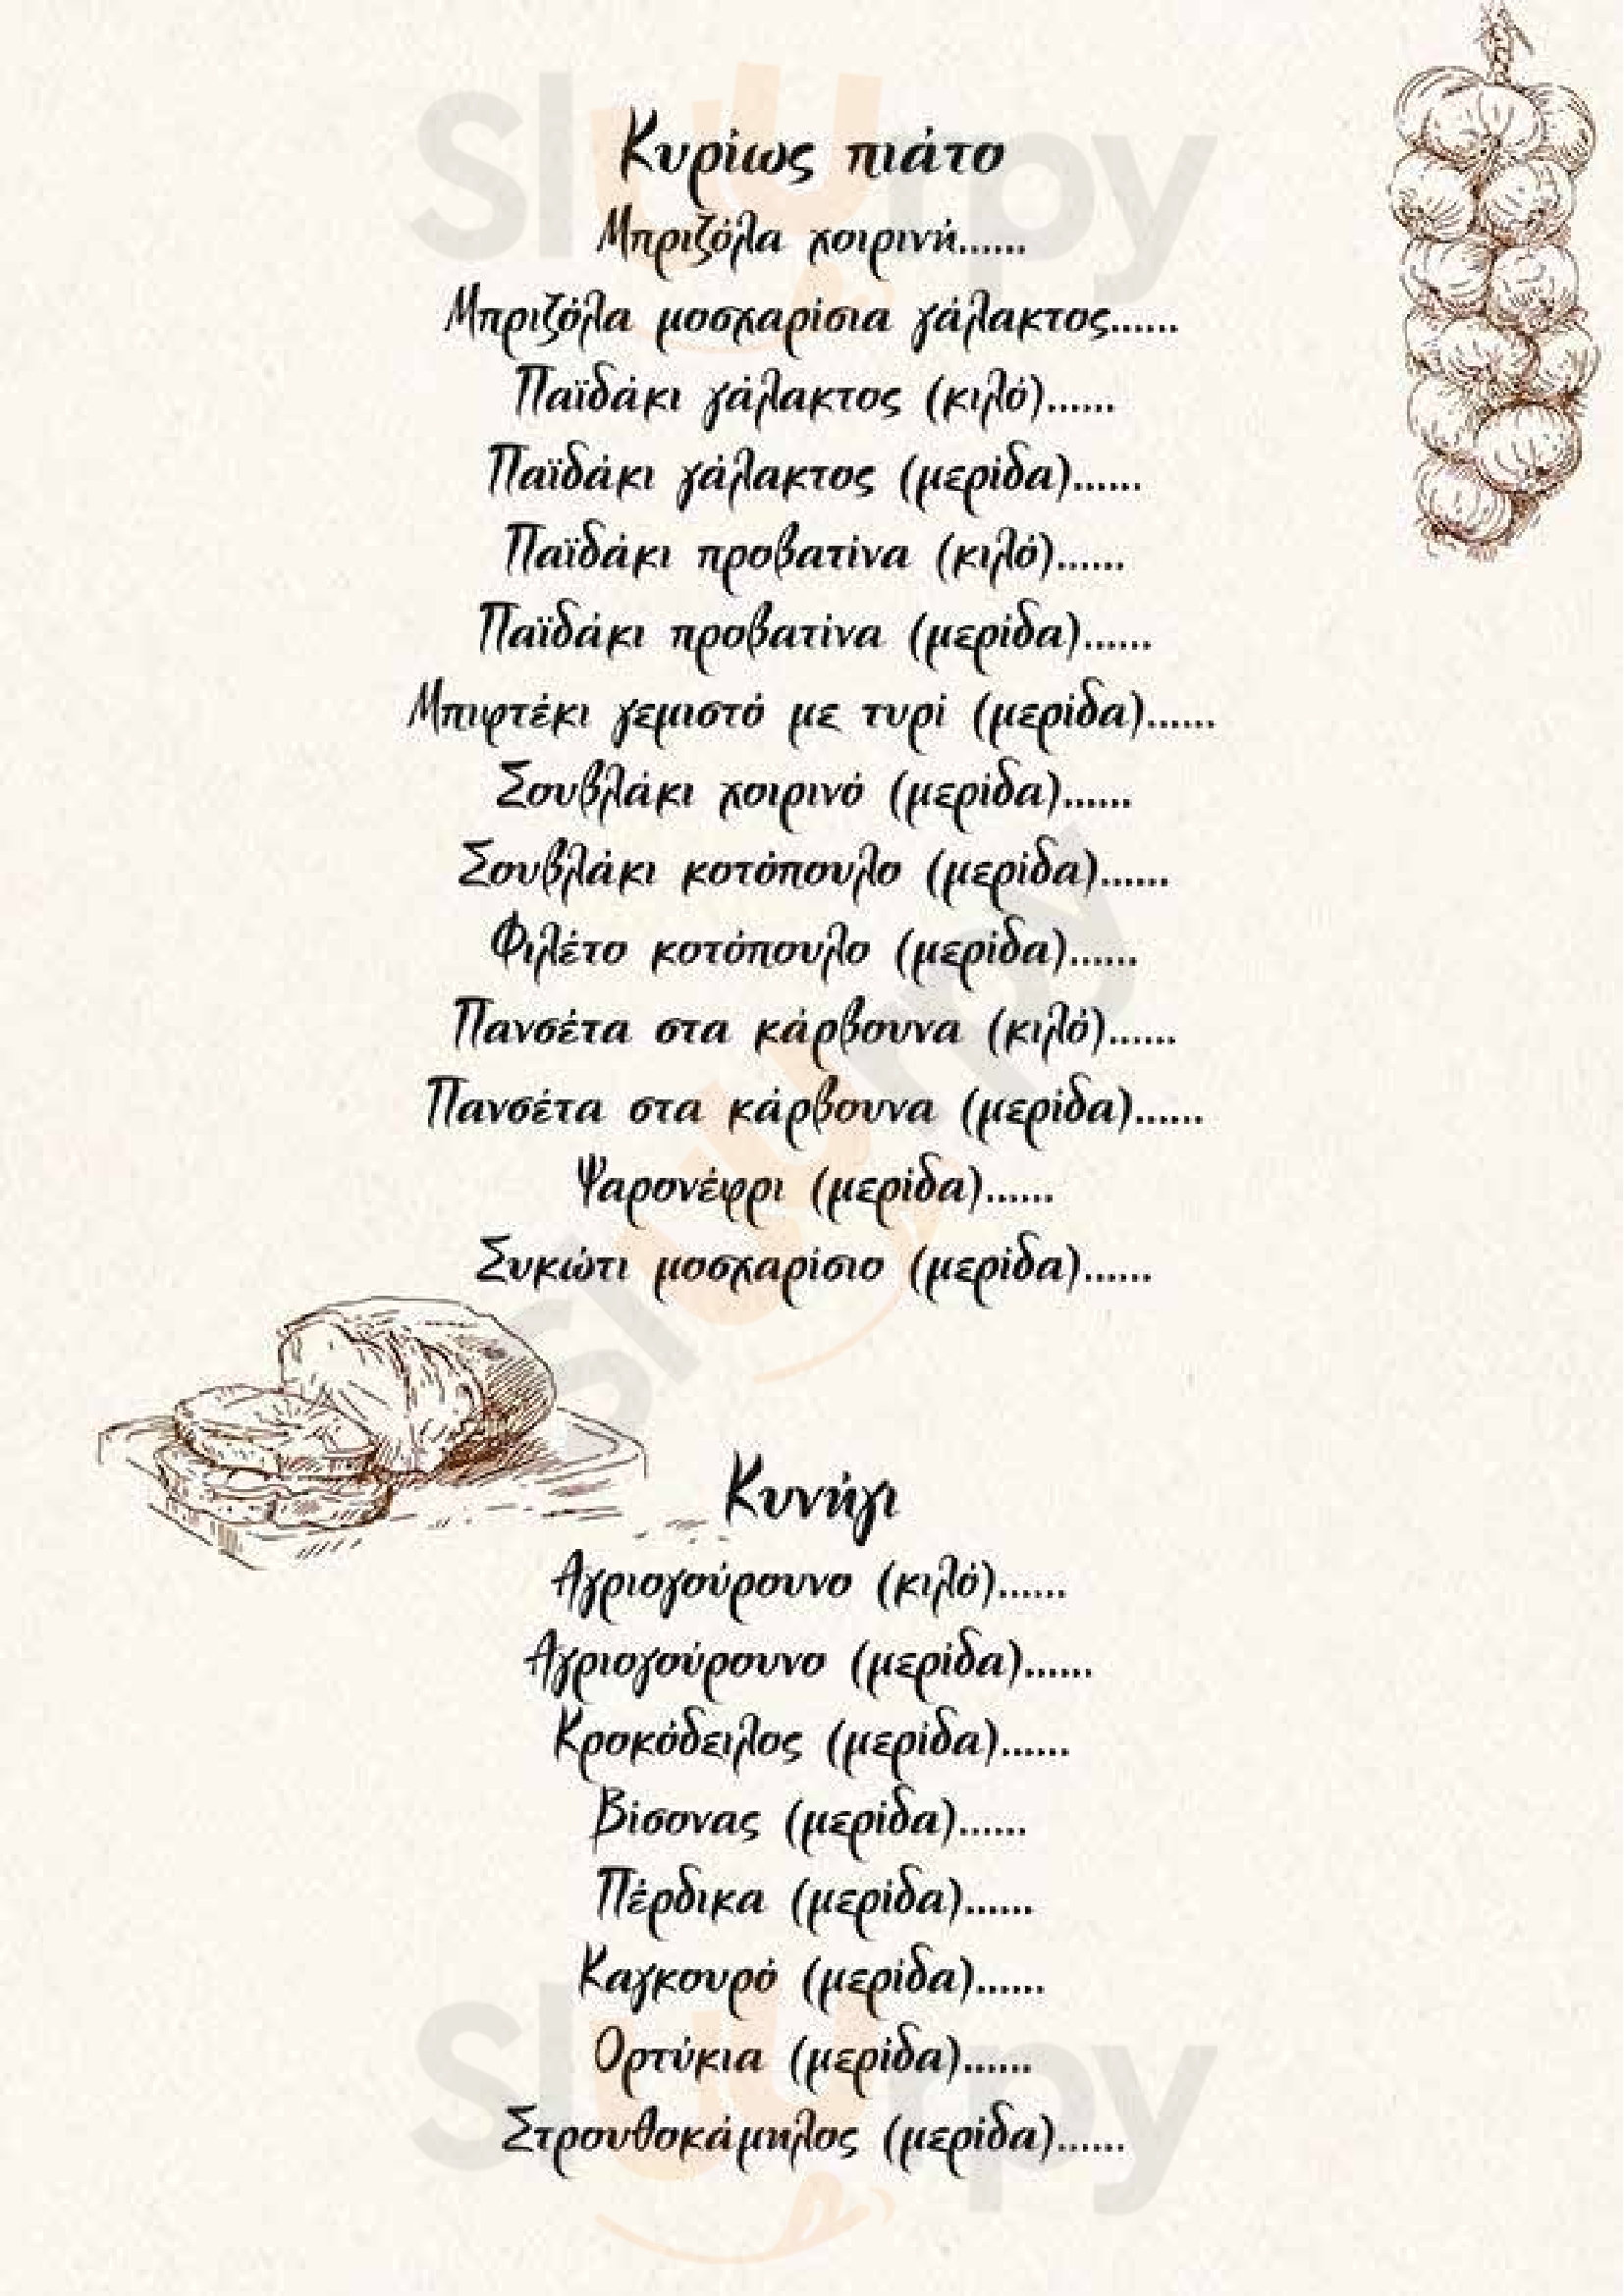 Κυρίως πιάτο
Μπριζόλα χοιρινή......
Μπριζόλα μοσχαρίσια γάλακτος......
Παϊδάκι γάλακτος (κιλό)......
Παϊδάκι γάλακτος (μερίδα)......
Παϊδάκι προβατίνα (κιλό)......
Παϊδάκι προβατίνα (μερίδα)......
Μπιφτέκι γεμιστό με τυρί (μερίδα)......
Σουβλάκι χοιρινό (μερίδα)......
Σουβλάκι κοτόπουλο (μερίδα)......
Φιλέτο κοτόπουλο (μερίδα)......
Πανσέτα στα κάρβουνα (κιλό)......
Πανσέτα στα κάρβουνα (μερίδα)......
Ψαρονέφρι (μερίδα)......
Συκώτι μοσχαρίσιο (μερίδα)......
Κυνήγι
Αγριογούρουνο (κιλό)......
Αγριογούρουνο (μερίδα)......
Κροκόδειλος (μερίδα)......
Βίσονας (μερίδα)......
Πέρδικα (μερίδα)......
Καγκουρό (μερίδα)......
Ορτύκια (μερίδα)......
Στρουθοκάμηλος (μερίδα)......
Sluurpy
Sluurpy
Sluurpy